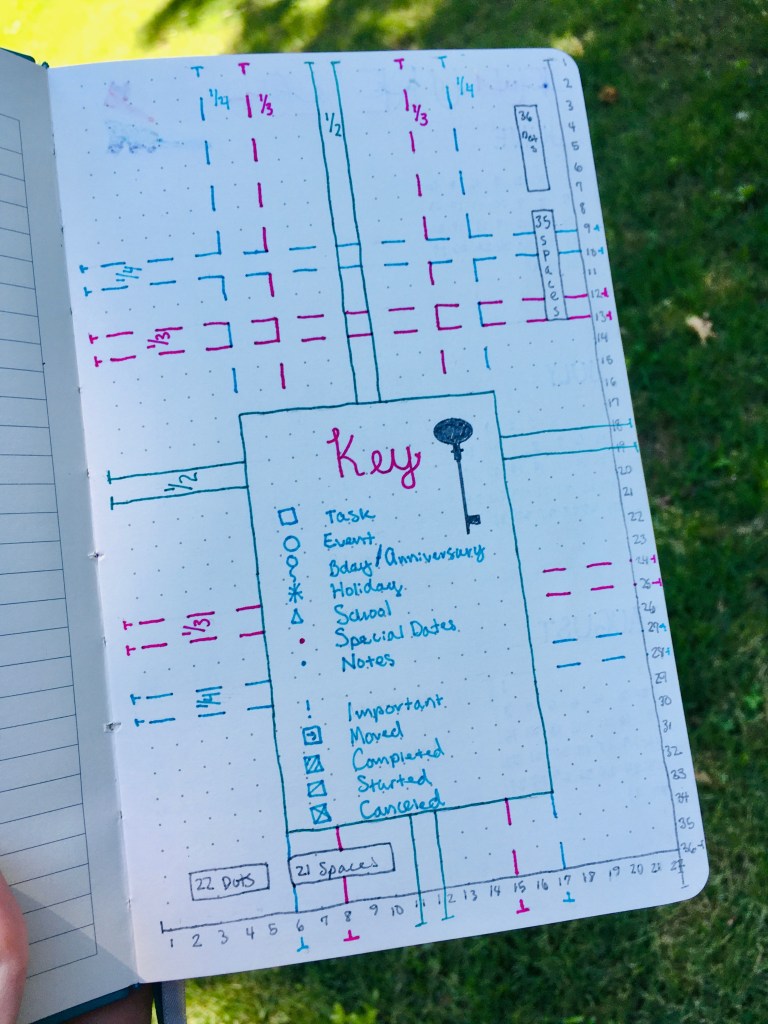 T T T T
1/4 1/3 1/2 1/3 1/4
36 Dots
35 spaces
T 1/4
T
T 1/3
T
1/2
T 1/3
T
T 1/4
T
Key
Task
Event
Bday/Anniversary
Holiday
School
Special Dates
Notes
! Important
Moved
Completed
Started
Canceled
22 Dots
21 Spaces
1
2
3
4
5
6
7
8
9
10
11
12
13
14
15
16
17
18
19
20
21
22
23
24
25
26
28
29
30
31
32
33
34
35
36
1 2 3 4 5 6 7 8 9 10 11 12 13 14 15 16 17 18 19 20 21 22
T T T T